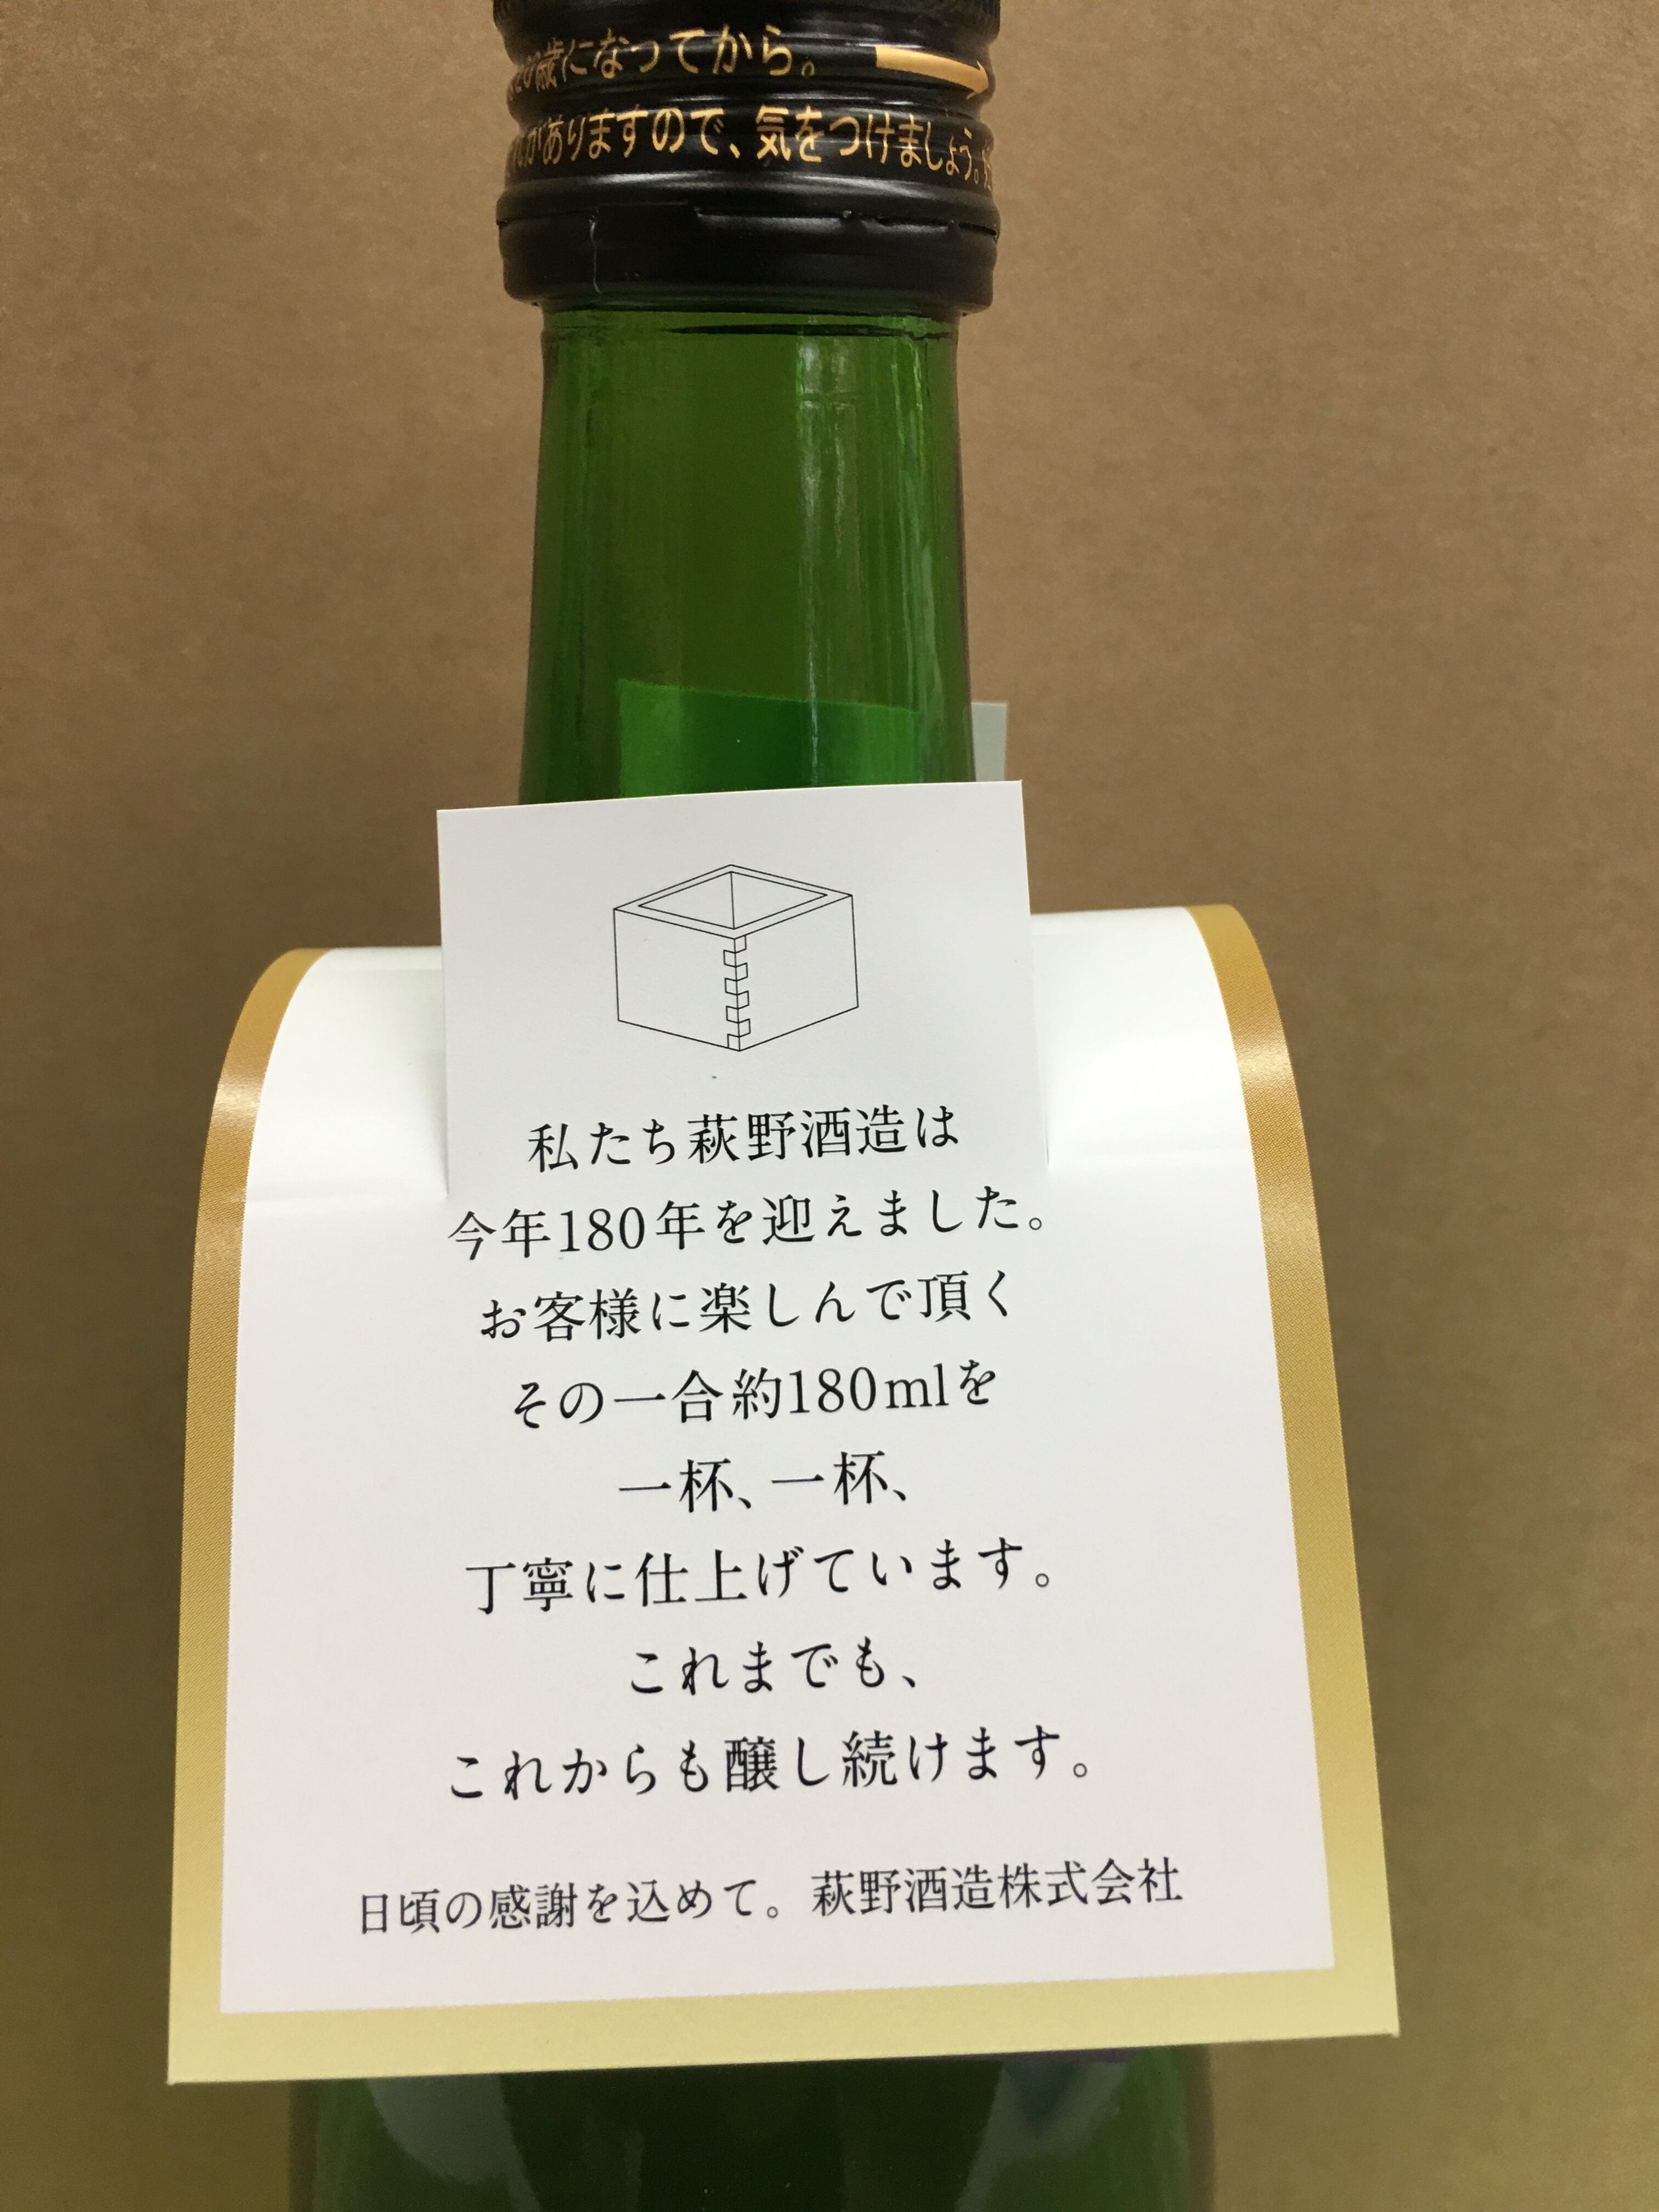 歳になってから。
がありますので、気をつけましょう。
私たち萩野酒造は
今年180年を迎えました。
お客様に楽しんで頂く
その一合約180mlを
一杯、一杯、
丁寧に仕上げています。
これまでも、
これからも醸し続けます。
日頃の感謝を込めて。萩野酒造株式会社